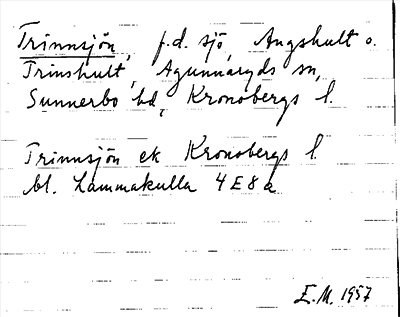 Trinnsjön, f.d. sjö, Angshult o.
Trinshult, Agunnaryds sn,
Sunnerbo hd, Kronobergs l.
Trinnsjön ek Kronobergs l.
bl. Lammakulla 4E8a
E.M. 1957